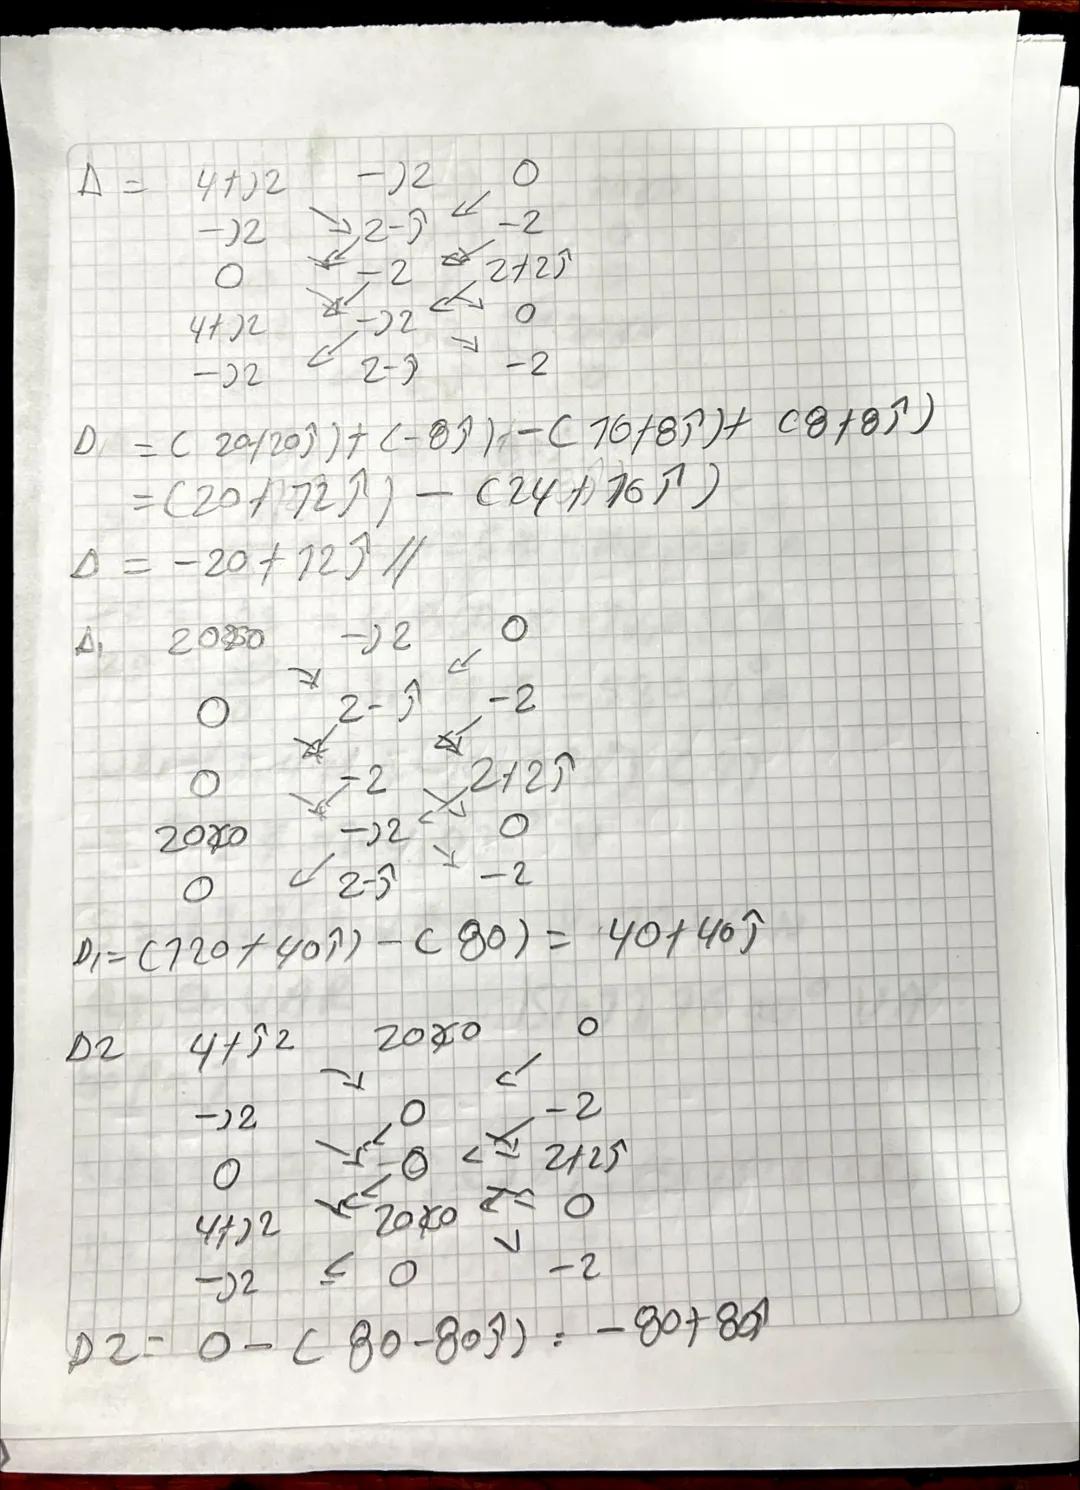 Δ = 4+j2 -j2 0
-j2 2-j -2
0 -2 2+2j
4+j2 -j2 0
-j2 2-j -2
D = (20+20j)+(-8j) -(16+8j)+ (8+8j)
=(20+12j) - (24+16j)
Δ = -20+12j //
Δ1 20∠0 -j2 0
0 2-j -2
0 -2 2+2j
20∠0 -j2 0
0 2-j -2
D1=(120+40j) -(80) = 40+40j
D2 4+j2 20∠0 0
-j2 0 -2
0 0 2+2j
4+j2 20∠0 0
-j2 0 -2
D2= 0-(80-80j) = -80+80j